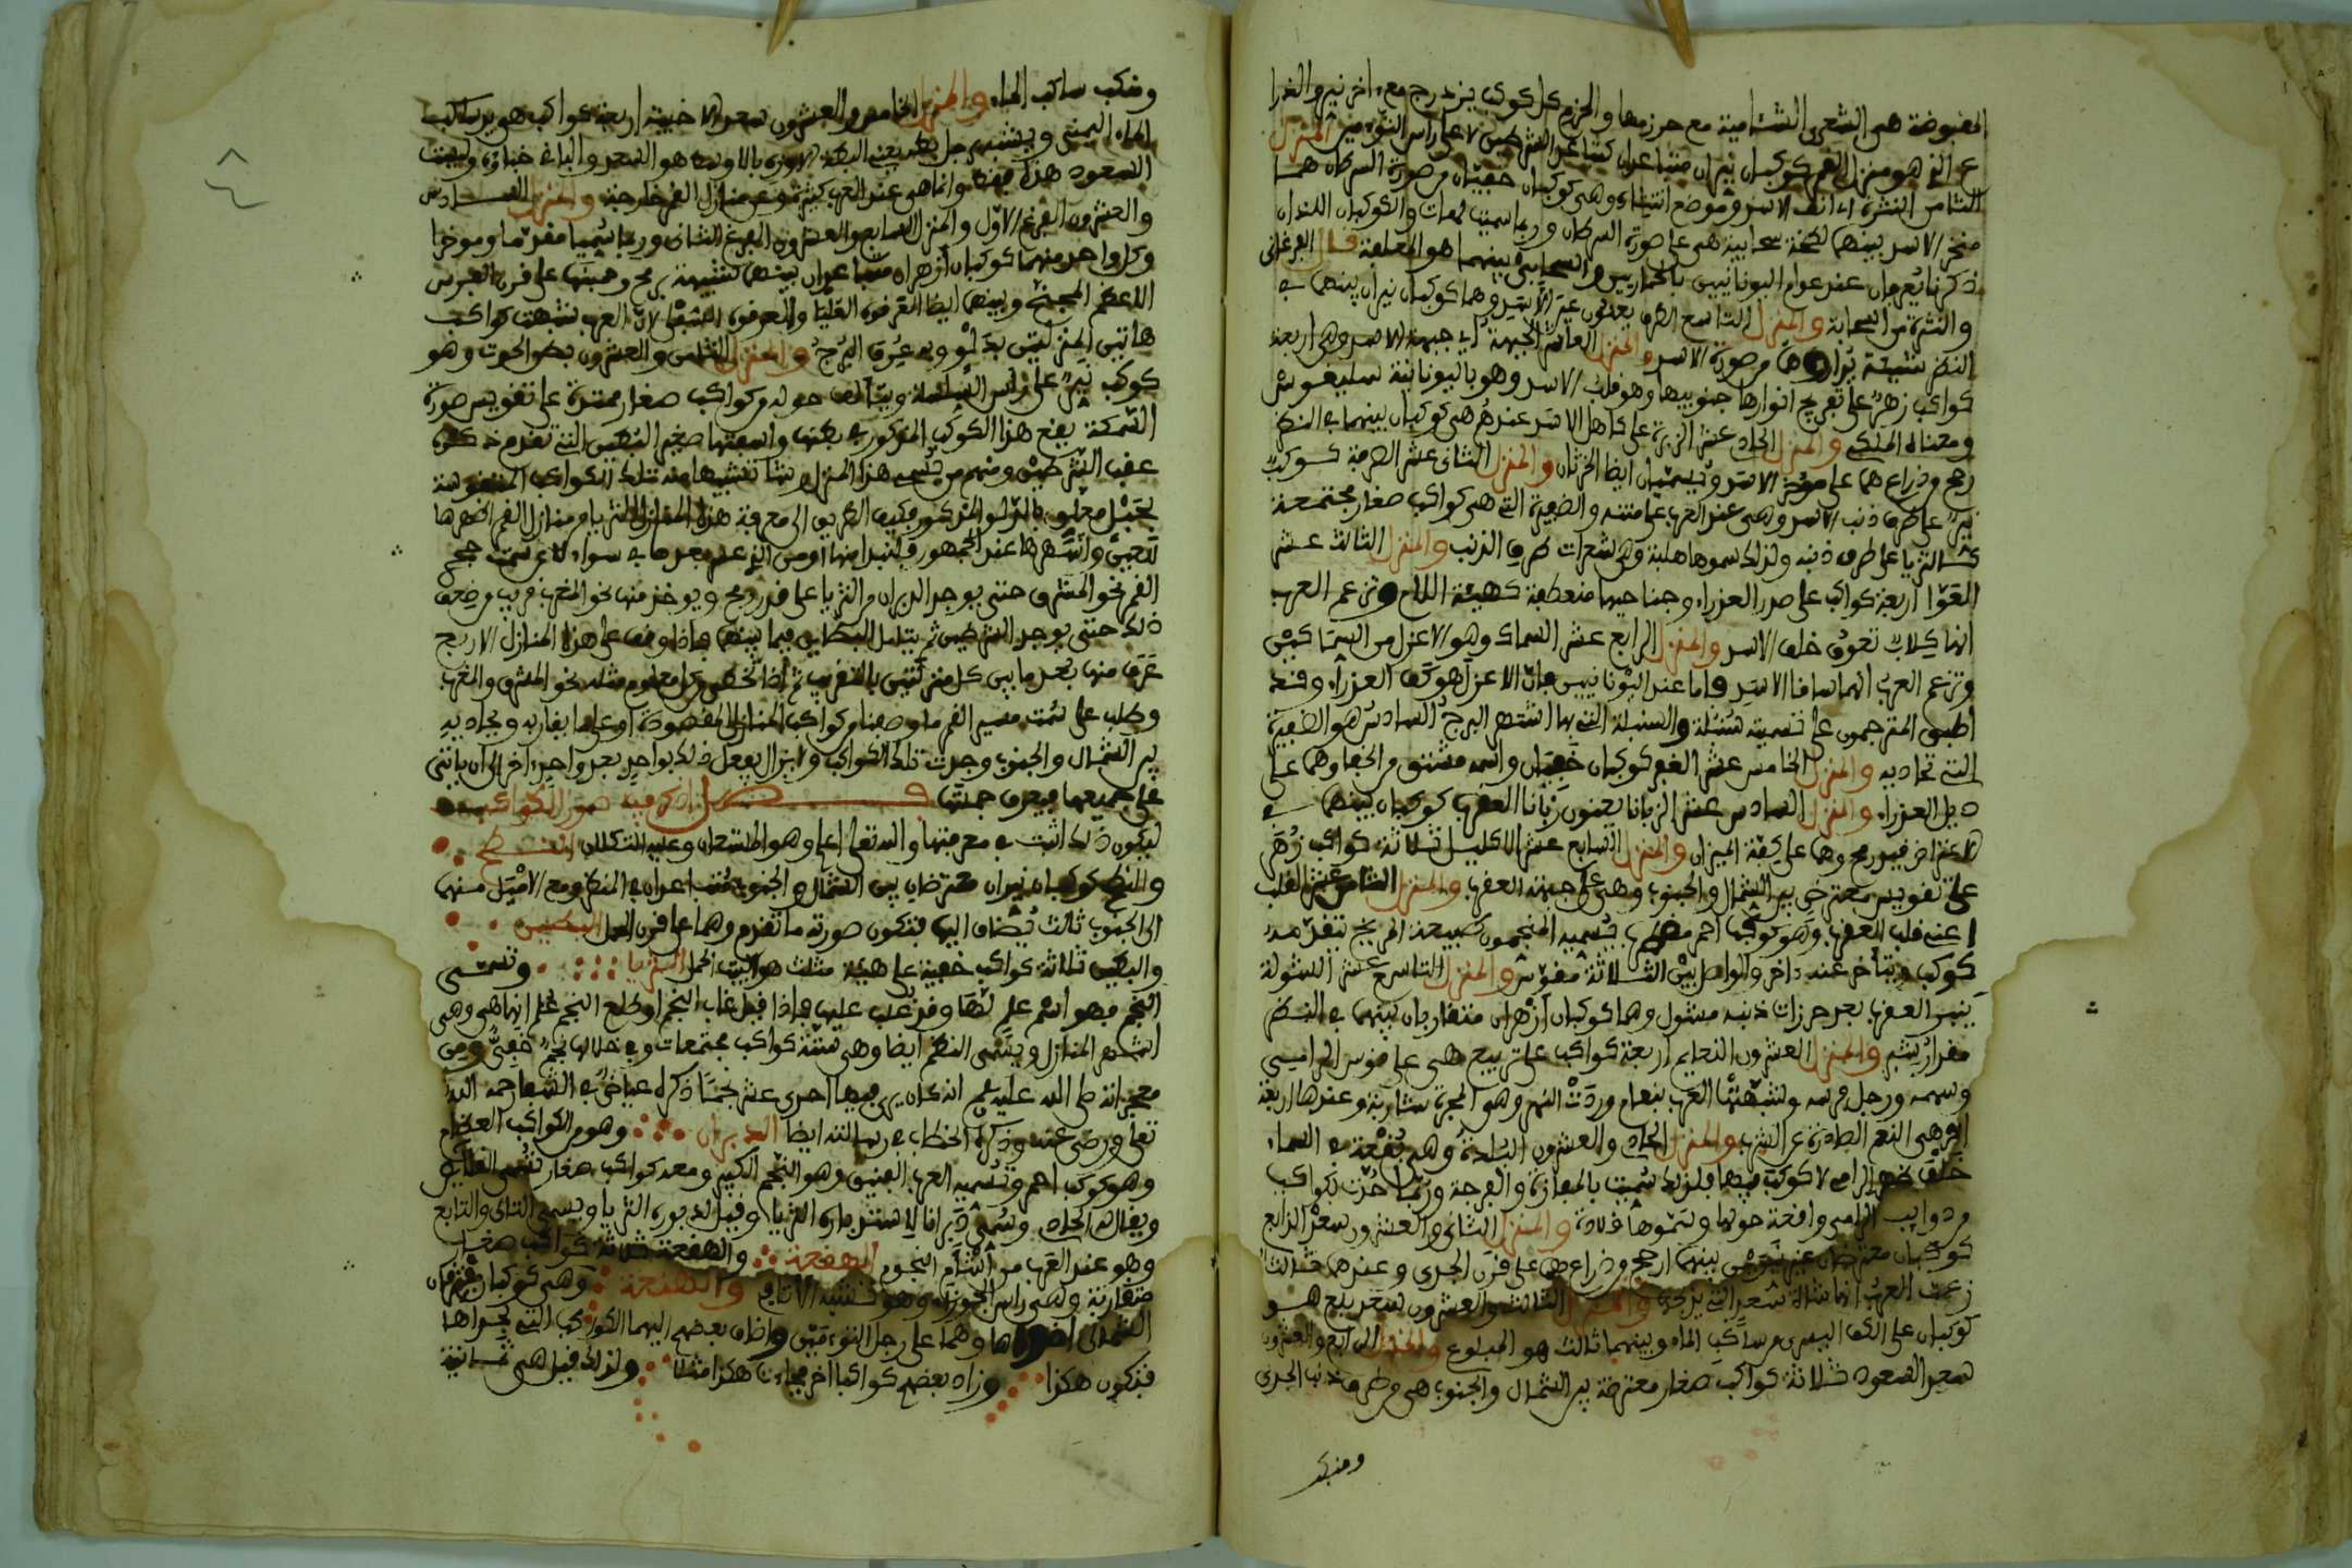 المقبوضة هي الشعرى الشامية مع مرزمها والمرزم كل كوكب يزدرج معه اخر نير والذرا
ع الذي هو منزل القمر كوكبان نيران متباعدان كتباعد الشرطين على راس التوءمين المنزل
الثامن النثرة اي انف الاسد وموضع انتثاره وهي كوكبان خفيان من صورة السرطان هما
منخر الاسد بينهما لطخة سحابية هي على صورة السرطان وربما سميت لهات والكوكبان اللذان
ذكرنا يعرفان عند عوام اليونانيين بالحمارين والسحابي بينهما هو المعلف قال الفرغاني
والنثرة من السحابة والمنزل التاسع الطرف يعنون عين الاسد وهما كوكبان نيران بينهما في
النظر من صورة الاسد والمنزل العاشر الجبهة اي جبهة الاسد وهي اربعة
كواكب زهر على تعريج انوارها جنوبيها وهو قلب الاسد وهو باليونانية
ومعناه الملكي والمنزل الحادي عشر الزبرة على كاهل الاسد عندهم هي كوكبان بينهما في النظر
رمح وذراع هما على مؤخر الاسد ويسميان ايضا الخرثان والمنزل الثاني عشر الصرفة كوكب
نير على طرف ذنب الاسد وهي عند العرب على متنه والضفيرة التي هي كواكب صغار مجتمعة
كالثريا على طرف ذنبه ولذلك سموها هلبة وهي شعرات طرف الذنب والمنزل الثالث عشر
العوا اربعة كواكب على صدر العذراء وجناحيها منعطفة كهيئة اللام وتزعم العرب
انها كلاب تعوي خلف الاسد والمنزل الرابع عشر السماك وهو الاعزل من السماكين
وتزعم العرب انهما ساقا الاسد واما عند اليونانيين فان الاعزل هو كف العذراء وقد
اطبق المترجمون على تسمية سنبلة والسنبلة التي بها اشتهر البرج السادس هو الضفيرة
التي تحاذيه والمنزل الخامس عشر الغفر كوكبان خفيان واسمه مشتق من الخفا وهما على
ذيل العذراء والمنزل السادس عشر الزبانا يعنون زبانا العقرب كوكبان بينهما في
الاعتراض قيد رمح وهما على كفة الميزان والمنزل السابع عشر الاكليل ثلاثة كواكب زهر
على تقويس معترض بين الشمال والجنوب وهي على جبهة العقرب والمنزل الثامن عشر القلب
اعني قلب العقرب وهو كوكب احمر يسميه المنجمون طبيعة المريخ يتقدمه
كوكب ويتاخر عنه اخر والواصل بين الثلاثة مقوس والمنزل التاسع عشر الشولة
ذنب العقرب بعد خرزات ذنبه مشول وهما كوكبان ازهران متقاربان بينهما في النظر
مقدار شبر والمنزل العشرون النعايم اربعة كواكب على تربيع هي على قوس الرامي
وسهمه ورجل فرسه وشبهتها العرب بنعام وردت النهر وهو المجرة شاربة وعندها اربعة
اخر هي النعم الصادرة عن الشرب والمنزل الحادي والعشرون البلدة وهي بقعة من السماء
خلف الرامي لا كوكب فيها فلذلك سميت بالمفازة والفرجة وربما حدت بكواكب
من ذوايب الرامي واقعة حولها وسموها قلادة والمنزل الثاني والعشرون سعد الذابح
كوكبان معترضان غير نيرين بينهما ارجح من ذراع هما على قرن الجدي وعندهما ثالث
زعمت العرب انها شاة سعد التي يذبحها والمنزل الثالث والعشرون سعد بلع هو
كوكبان على الكف اليسرى من ساكب الماء وبينهما ثالث هو المبلوع والمنزل الرابع والعشرون
سعد السعود ثلاثة كواكب صغار معترضة بين الشمال والجنوب هي من طرف ذنب الجدي
ومنكب
ومنكب ساكب الماء والمنزل الخامس والعشرون سعد الاخبية اربعة كواكب هو بيد ساكب
الماء اليمنى وبنسبه رجل بطة يعني البطة الاوزة بالاوسط هو السعد والباقي خباؤه وليست
السعود هذه فقط وانما هي عند العرب كثيرة من منازل القمر خارجة والمنزل السادس
والعشرون الفرغ الاول والمنزل السابع والعشرون الفرغ الثاني وربما سميا مقدما ومؤخرا
وكل واحد منهما كوكبان ازهران متباعدان بينهما كشبيهة برمح وهيئتها على الفرس
الاعظم المجنح وبينهما ايضا العرقوة العليا والعرقوة السفلى لان العرب شبهت كواكب
هاتين المنزلتين بدلو وبه عرف البرج والمنزل الثامن والعشرون بطن الحوت وهو
كوكب نير على راس المسلسلة ويتالف حوله من كواكب صغار ممتدة على تقويس صورة
السمكة يقع هذا الكوكب المذكور في بطنها
عقب الشرطين ومنهم من يسمي هذا المنزل رشا تشبيها منه تلك الكواكب
بحبل معلق بالدلو المذكور وكيف الطريق الى معرفة هذه المنازل الثريا من منازل القمر اظهرها
للحس واشهرها عند الجمهور فلنبدا منها
القمر نحو المشرق حتى يوجد الدبران من الثريا على قدر رمح ويوخذ منها نحو المغرب قريب من ضعف
ذلك حتى يوجد الشرطين ثم يتامل البطين فيما بينهما فاذا وقف على هذه المنازل الاربع
عرف منها بعد ما بين كل منزلتين بالتقريب ثم اذا تخطى من كل معلوم مثله نحو المشرق والمغرب
وطلب على سمت مسير القمر ما وصفنا من كواكب المنازل المقصودة او على ما يقاربه ويحاذيه
بين الشمال والجنوب وجدت تلك الكواكب ولا يزال يفعل ذلك بواحد بعد واحد اخر الى ان ياتي
على جميعها فيعرف جملتها فصل اذكر فيه صور الكواكب
ليكون ذلك اثبت في معرفتها والله تعلى اعلم وهو المستعان وعليه التكلان النطح
والنطح كوكبان نيران معترضان بين الشمال والجنوب متباعدان في المنظر ومع الاميل منهما
الى الجنوب ثالث يضاف اليها فتكون صورته ما تقدم وهما على قرن الحمل البطين
والبطين ثلاثة كواكب خفية على هيئة مثلث هو الية الحمل الثريا وتسمى
النجم فهو اسم علم لها وقد غلب عليها فاذا قيل غاب النجم او طلع النجم علم انها هي وهي
اشهر المنازل ويسمى النظم ايضا وهي ستة كواكب مجتمعات وفي خلالها نجم خفي ومن
معجزاته صلى الله عليه وسلم انه كان يرى فيها احدى عشر نجما ذكره عياض في الشفا رحمه الله
تعلى ورضي عنه وذكره الخطاب في رسالته ايضا الدبران وهو من الكواكب العظام
وهو كوكب احمر وتسميه العرب الفنيق وهو النجم الكبير ومعه كواكب صغار تسمى القلايص
ويقال له الحادي وسمي دبرانا لاستدباره الثريا وقيل لدبوره الثريا ويسمى التالي والتابع
وهو عند العرب من اشام النجوم الهقعة والهقعة ثلاثة كواكب صغار
متقاربة وهي راس الجوزاء وهو تشبه الاثافي والهنعة وهي كوكبان مقترنان
الشمالي اضواها وهما على رجل التوءمين واضاف بعضهم اليهما الكواكب التي بجواها
فتكون هكذا وزاد بعضهم كواكبا اخر فجاءت هكذا مثلا ولذلك قيل هي ثمانية